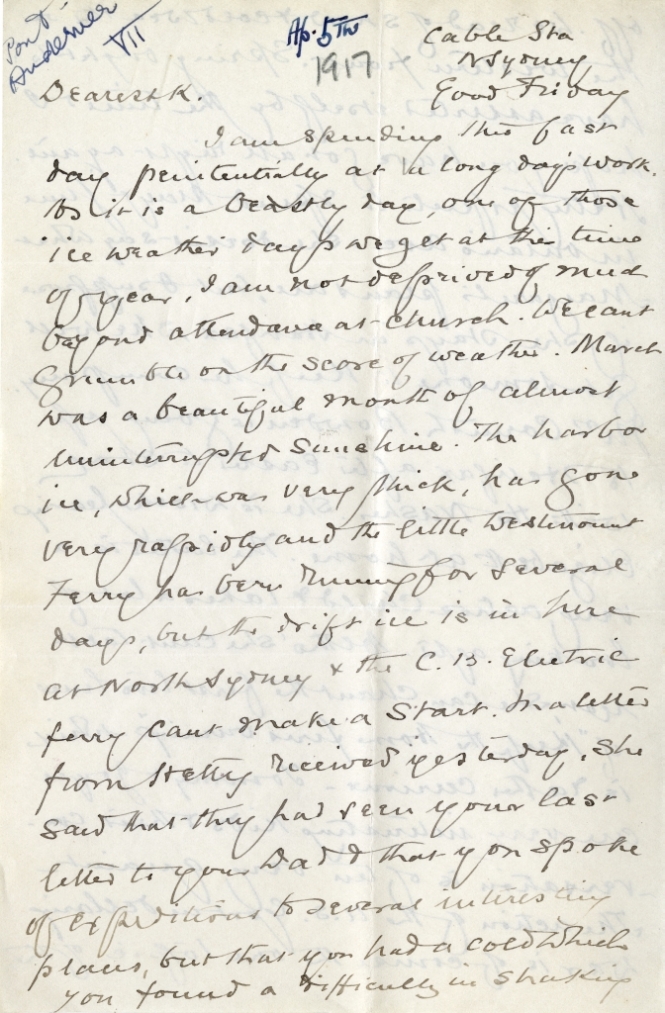 Pont
Audemer
VII
Ap. 5th
1917
Cable Sta
N Sydney
Good Friday
Dearest K.
I am spending this fast
day penitentially at a long day's work.
As it is a beastly day, one of those
ice weather days we get at this time
of year, I am not deprived of much
beyond attendance at church. We cant
grumble on the score of weather. March
was a beautiful month of almost
uninterrupted sunshine. The harbor
ice, which was very thick, has gone
very rapidly and the little Westmount
Ferry has been running for several
days, but the drift ice is in here
at North Sydney & the C. B. Electric
ferry cant make a start. In a letter
from Hetty received yesterday, she
said that they had seen your last
letter to your Dad & that you spoke
of expeditions to several interesting
places, but that you had a cold which
you found a difficulty in shaking